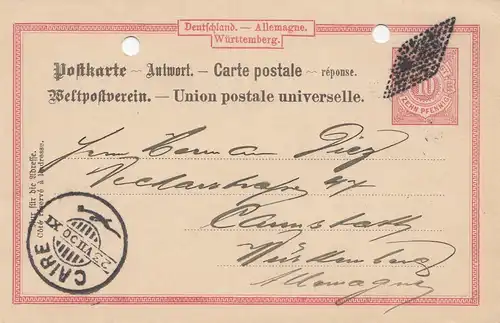 Deutschland. — Allemagne.
Württemberg.
Postkarte — Antwort. — Carte postale — réponse.
Weltpostverein. — Union postale universelle.
10
ZEHN PFENNIG
Nur für die Adresse.
Côté réservé à l'adresse.
Herrn Herman Diez
Neckarstraße 47
Cannstatt
Württemberg
Allemagne
CAIRE
VII 90 XI